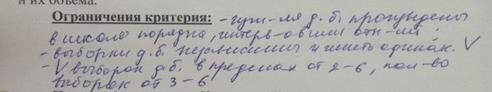 и их объема.
Ограничения критерия: - д.б. проведены
в школе порядка, интерв-ов или отн-ий;
- выборки д.б. независимы и иметь одинак. V
- V выборок д.б. в пределах от 2-6, кол-во
выборок от 3-6